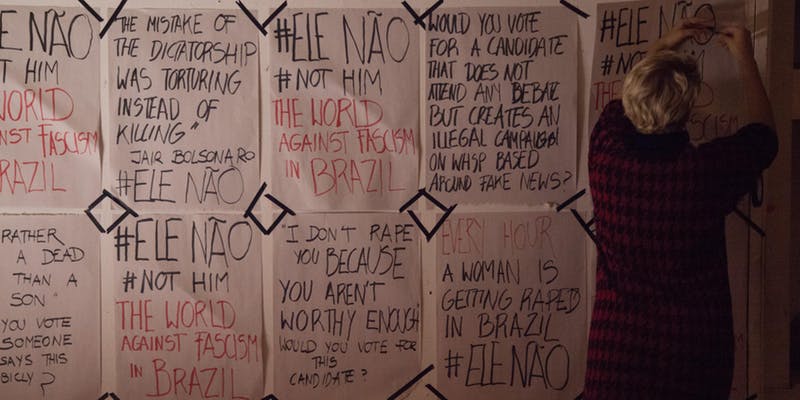 ELE NÃO
T HIM
WORLD
NST FASCISM
RAZIL
THE MISTAKE OF
THE DICTATORSHIP
WAS TORTURING
INSTEAD OF
KILLING"
JAIR BOLSONARO
#ELE NÃO
#ELE NÃO
#NOT HIM
THE WORLD
AGAINST FASCISM
IN BRAZIL
WOULD YOU VOTE
FOR A CANDIDATE
THAT DOES NOT
ATEND ANY DEBATE
BUT CREATES AN
ILLEGAL CAMPAIGN
ON WHSP BASED
AROUND FAKE NEWS?
#ELE NÃO
#NO
TH
SCISM
RATHER
A DEAD
THAN A
SON"
YOU VOTE
SOMEONE
SAYS THIS
BICLY?
#ELE NÃO
#NOT HIM
THE WORLD
AGAINST FASCISM
IN BRAZIL
"I DON'T RAPE
YOU BECAUSE
YOU AREN'T
WORTHY ENOUGH"
WOULD YOU VOTE FOR
THIS
CANDIDATE?
EVERY HOUR
A WOMAN IS
GETTING RAPED
IN BRAZIL
#ELE NÃO